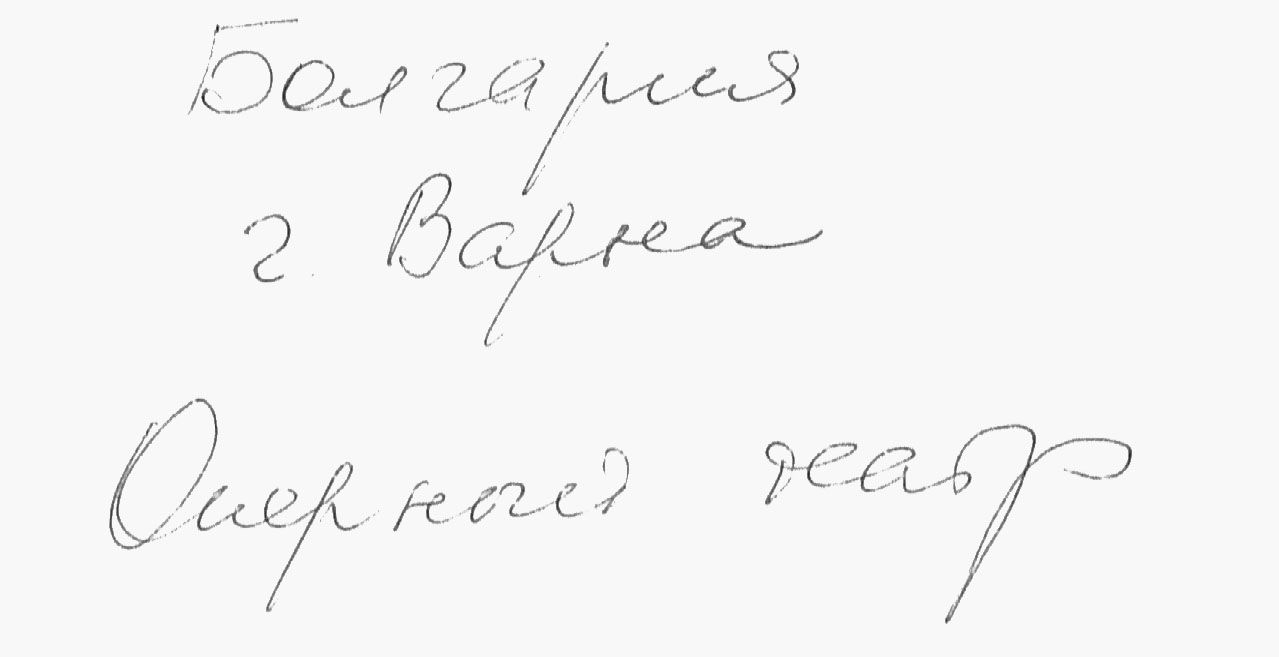 Болгария
г. Варна
Оперный театр